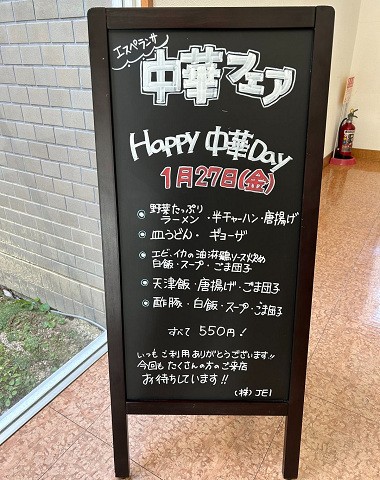 エスペランサ
中華フェア
Happy 中華Day
1月27日(金)
◉ 野菜たっぷり
ラーメン・半チャーハン・唐揚げ
◉ 皿うどん・ギョーザ
◉ エビ・イカの油淋鶏ソース炒め
白飯・スープ・ごま団子
◉ 天津飯・唐揚げ・ごま団子
◉ 酢豚・白飯・スープ・ごま団子
すべて 550円!
いつもご利用ありがとうございます!!
今回もたくさんの方のご来店
お待ちしています!!
(株)JEI